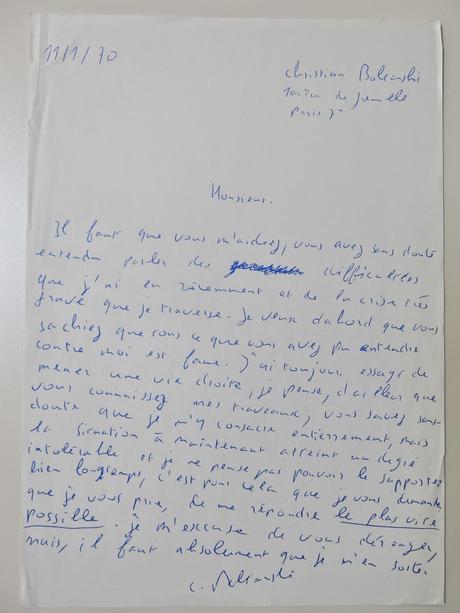 11/1/70
Christian Boltanski
100 rue de Grenelle
Paris 7e
Monsieur.
Il faut que vous m'aidiez, vous avez sans doute
entendu parler des difficultées
que j'ai eu récemment et de la crise très
grave que je traverse. Je veux dabord que vous
sachiez que tous ce que vous avez pu entendre
contre moi est faux. J'ai toujours essayé de
mener une vie droite, je pense, d'ailleur que
vous connaissez mes travaux; vous savez sans
doute que je m'y consacre entièrement, mais
la situation a maintenant atteint un degré
intolérable et je ne pense pas pouvoir le supporter
bien longtemps, c'est pour cela que je vous demande,
que je vous prie, de me répondre le plus vite
possible. Je m'excuse de vous déranger,
mais, il faut absolument que je m'en sorte.
C. Boltanski